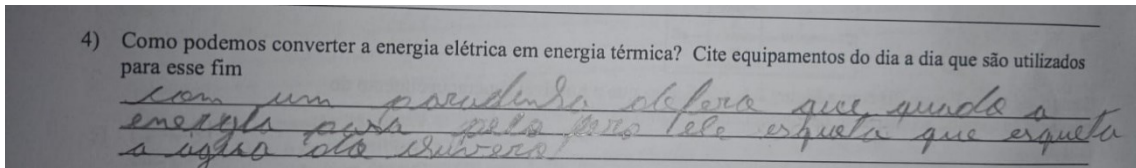 4) Como podemos converter a energia elétrica em energia térmica? Cite equipamentos do dia a dia que são utilizados
para esse fim
com um que a
energia pasa pelo fero ele esqueta que esqueta
a agua do